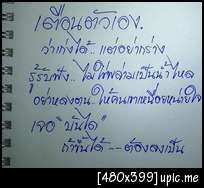 เตือนตัวเอง.
ว่าเก่งได้..แต่อย่ากร่าง
รู้รับฟัง..ไม่ใช่พล่ามเป็นน้ำไหล
อย่าหลงตน..ให้คนเขาเหนื่อยหน่ายใจ
เจอ "บันได"
ถ้าขึ้นได้--ต้องลงเป็น
[480x399]upic.me